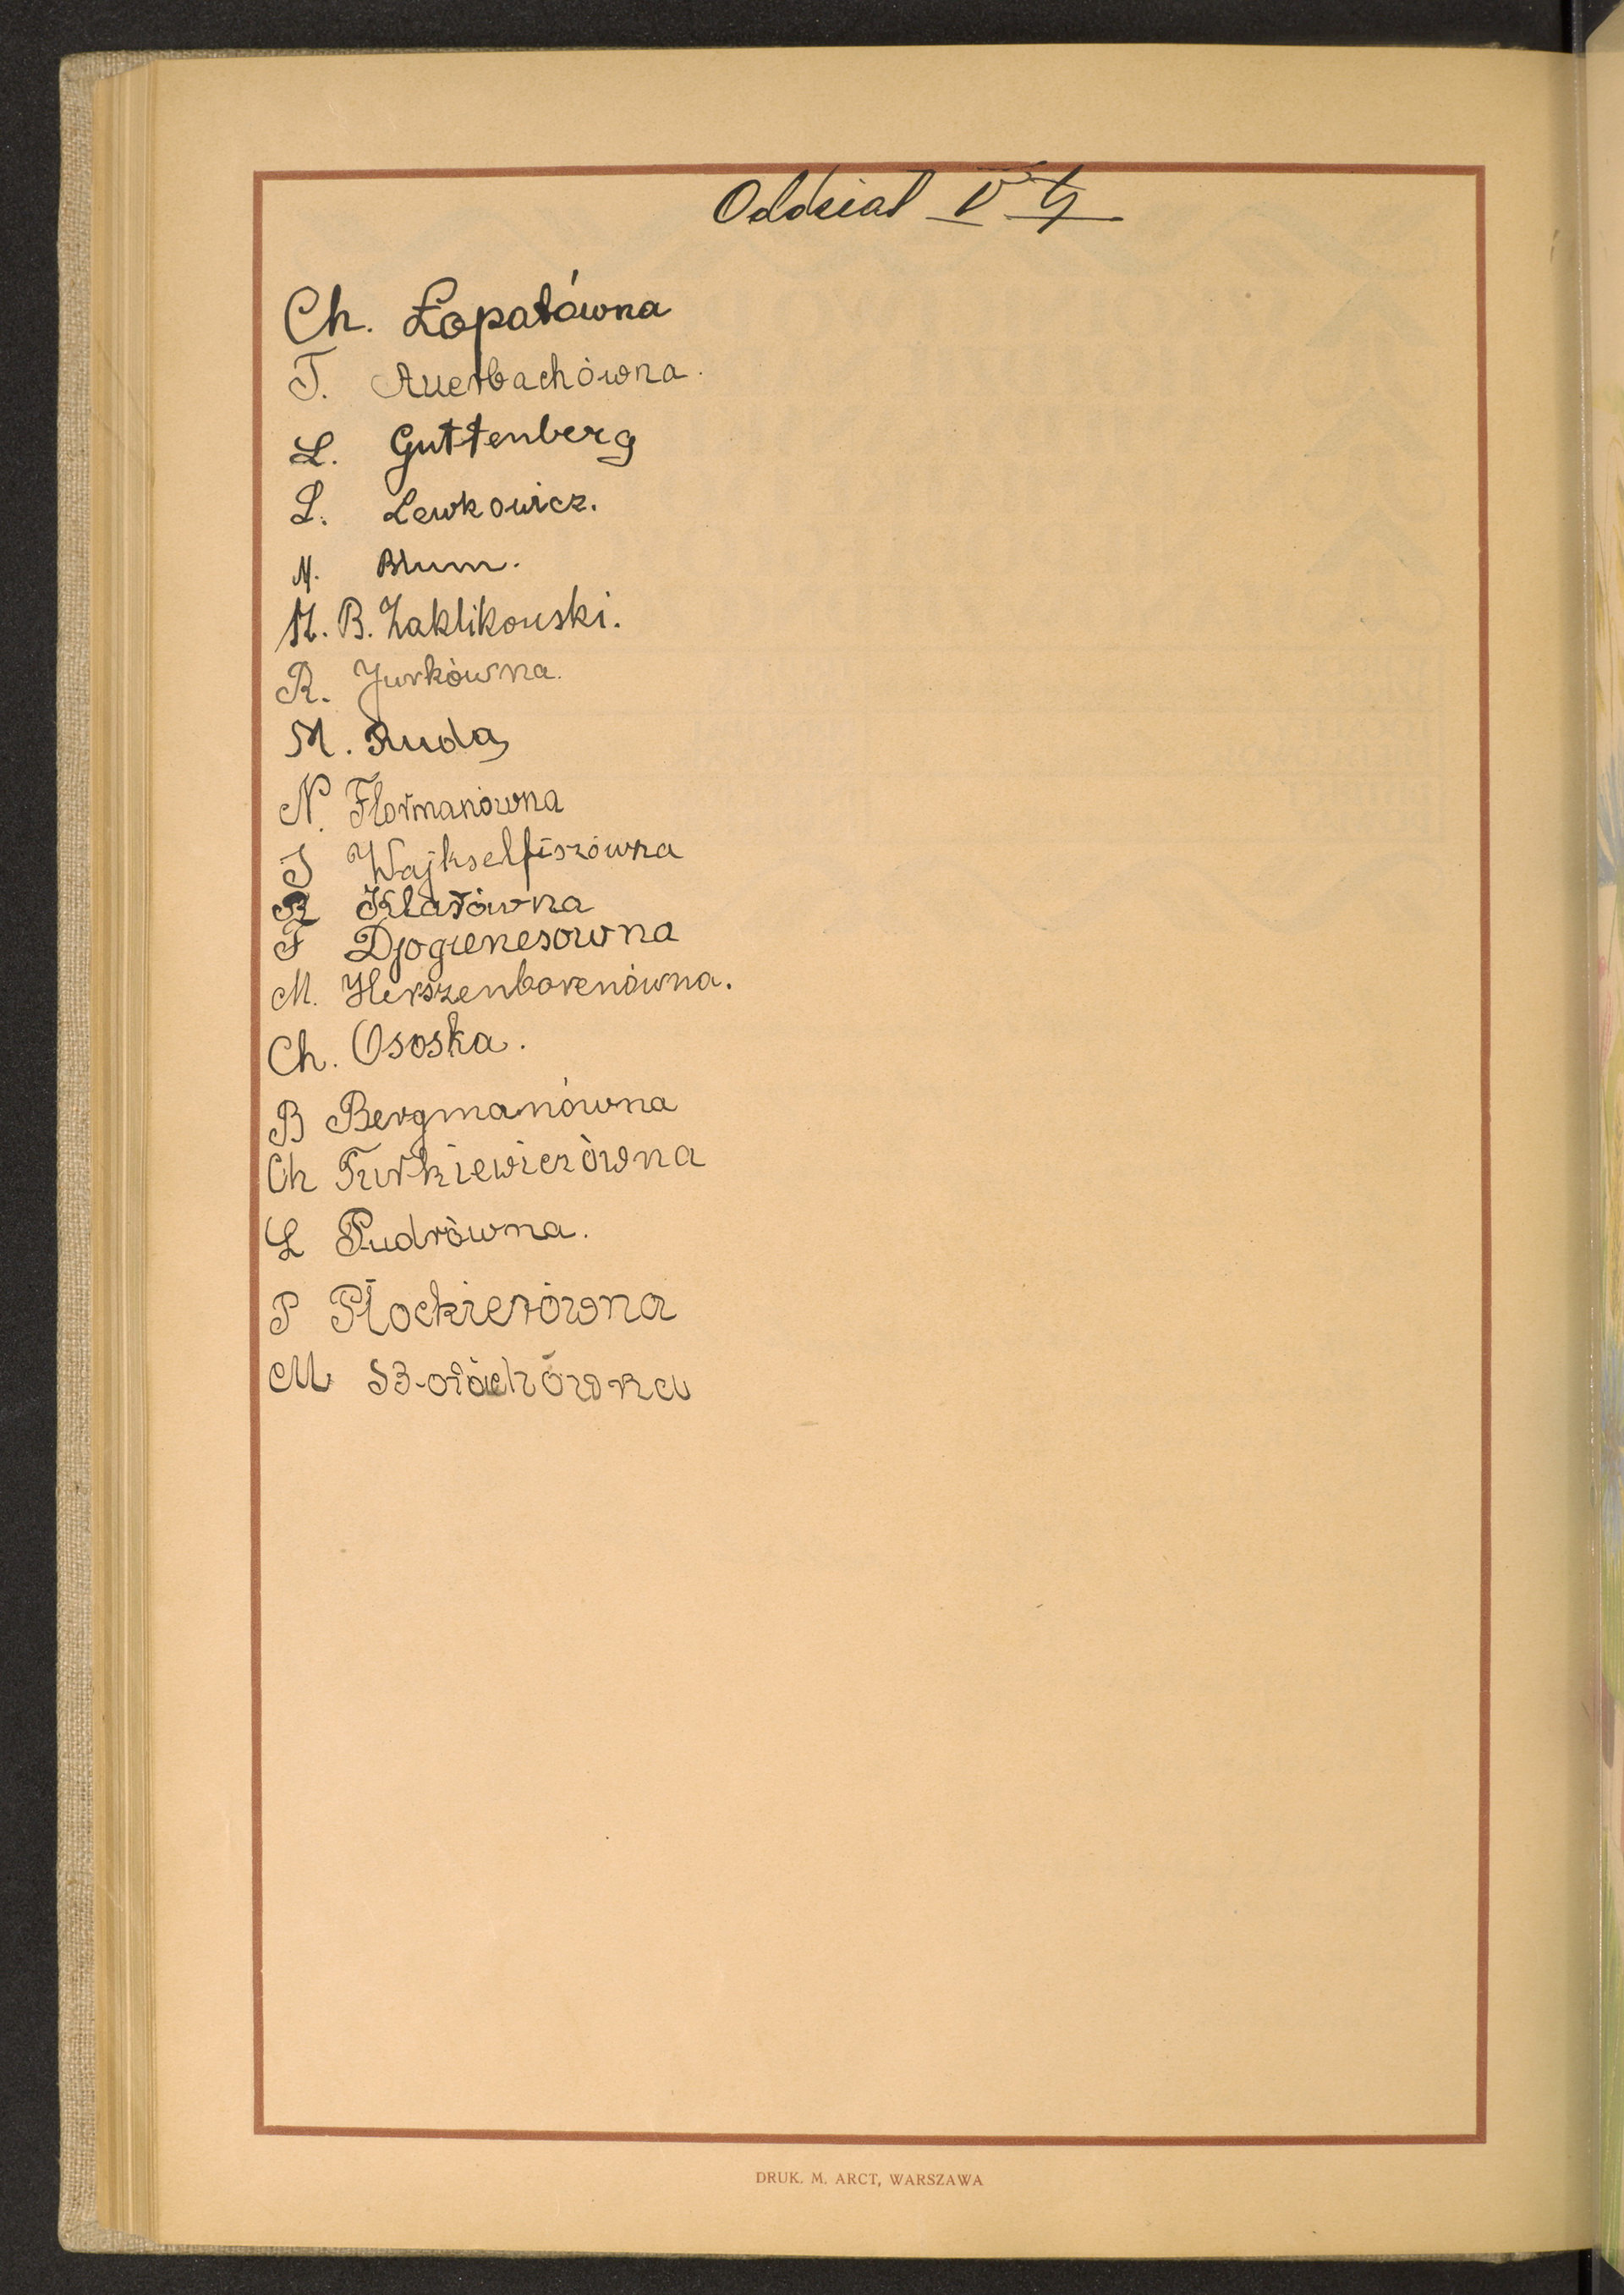 Oddział V G
Ch. Łopatówna
T. Auerbachówna.
L. Guttenberg
L. Lewkowicz.
M. Blum.
M. B. Zaklikowski.
R. Jurkówna.
M. Ruda
N. Flormanówna
J Wajkselfiszówna
R Klarówna
F Djogienesowna
M. Herszenborenówna.
Ch. Ososka.
B Bergmanówna
Ch Turkiewiczówna
L Pudrówna.
P Płockierówna
M
DRUK. M. ARCT, WARSZAWA